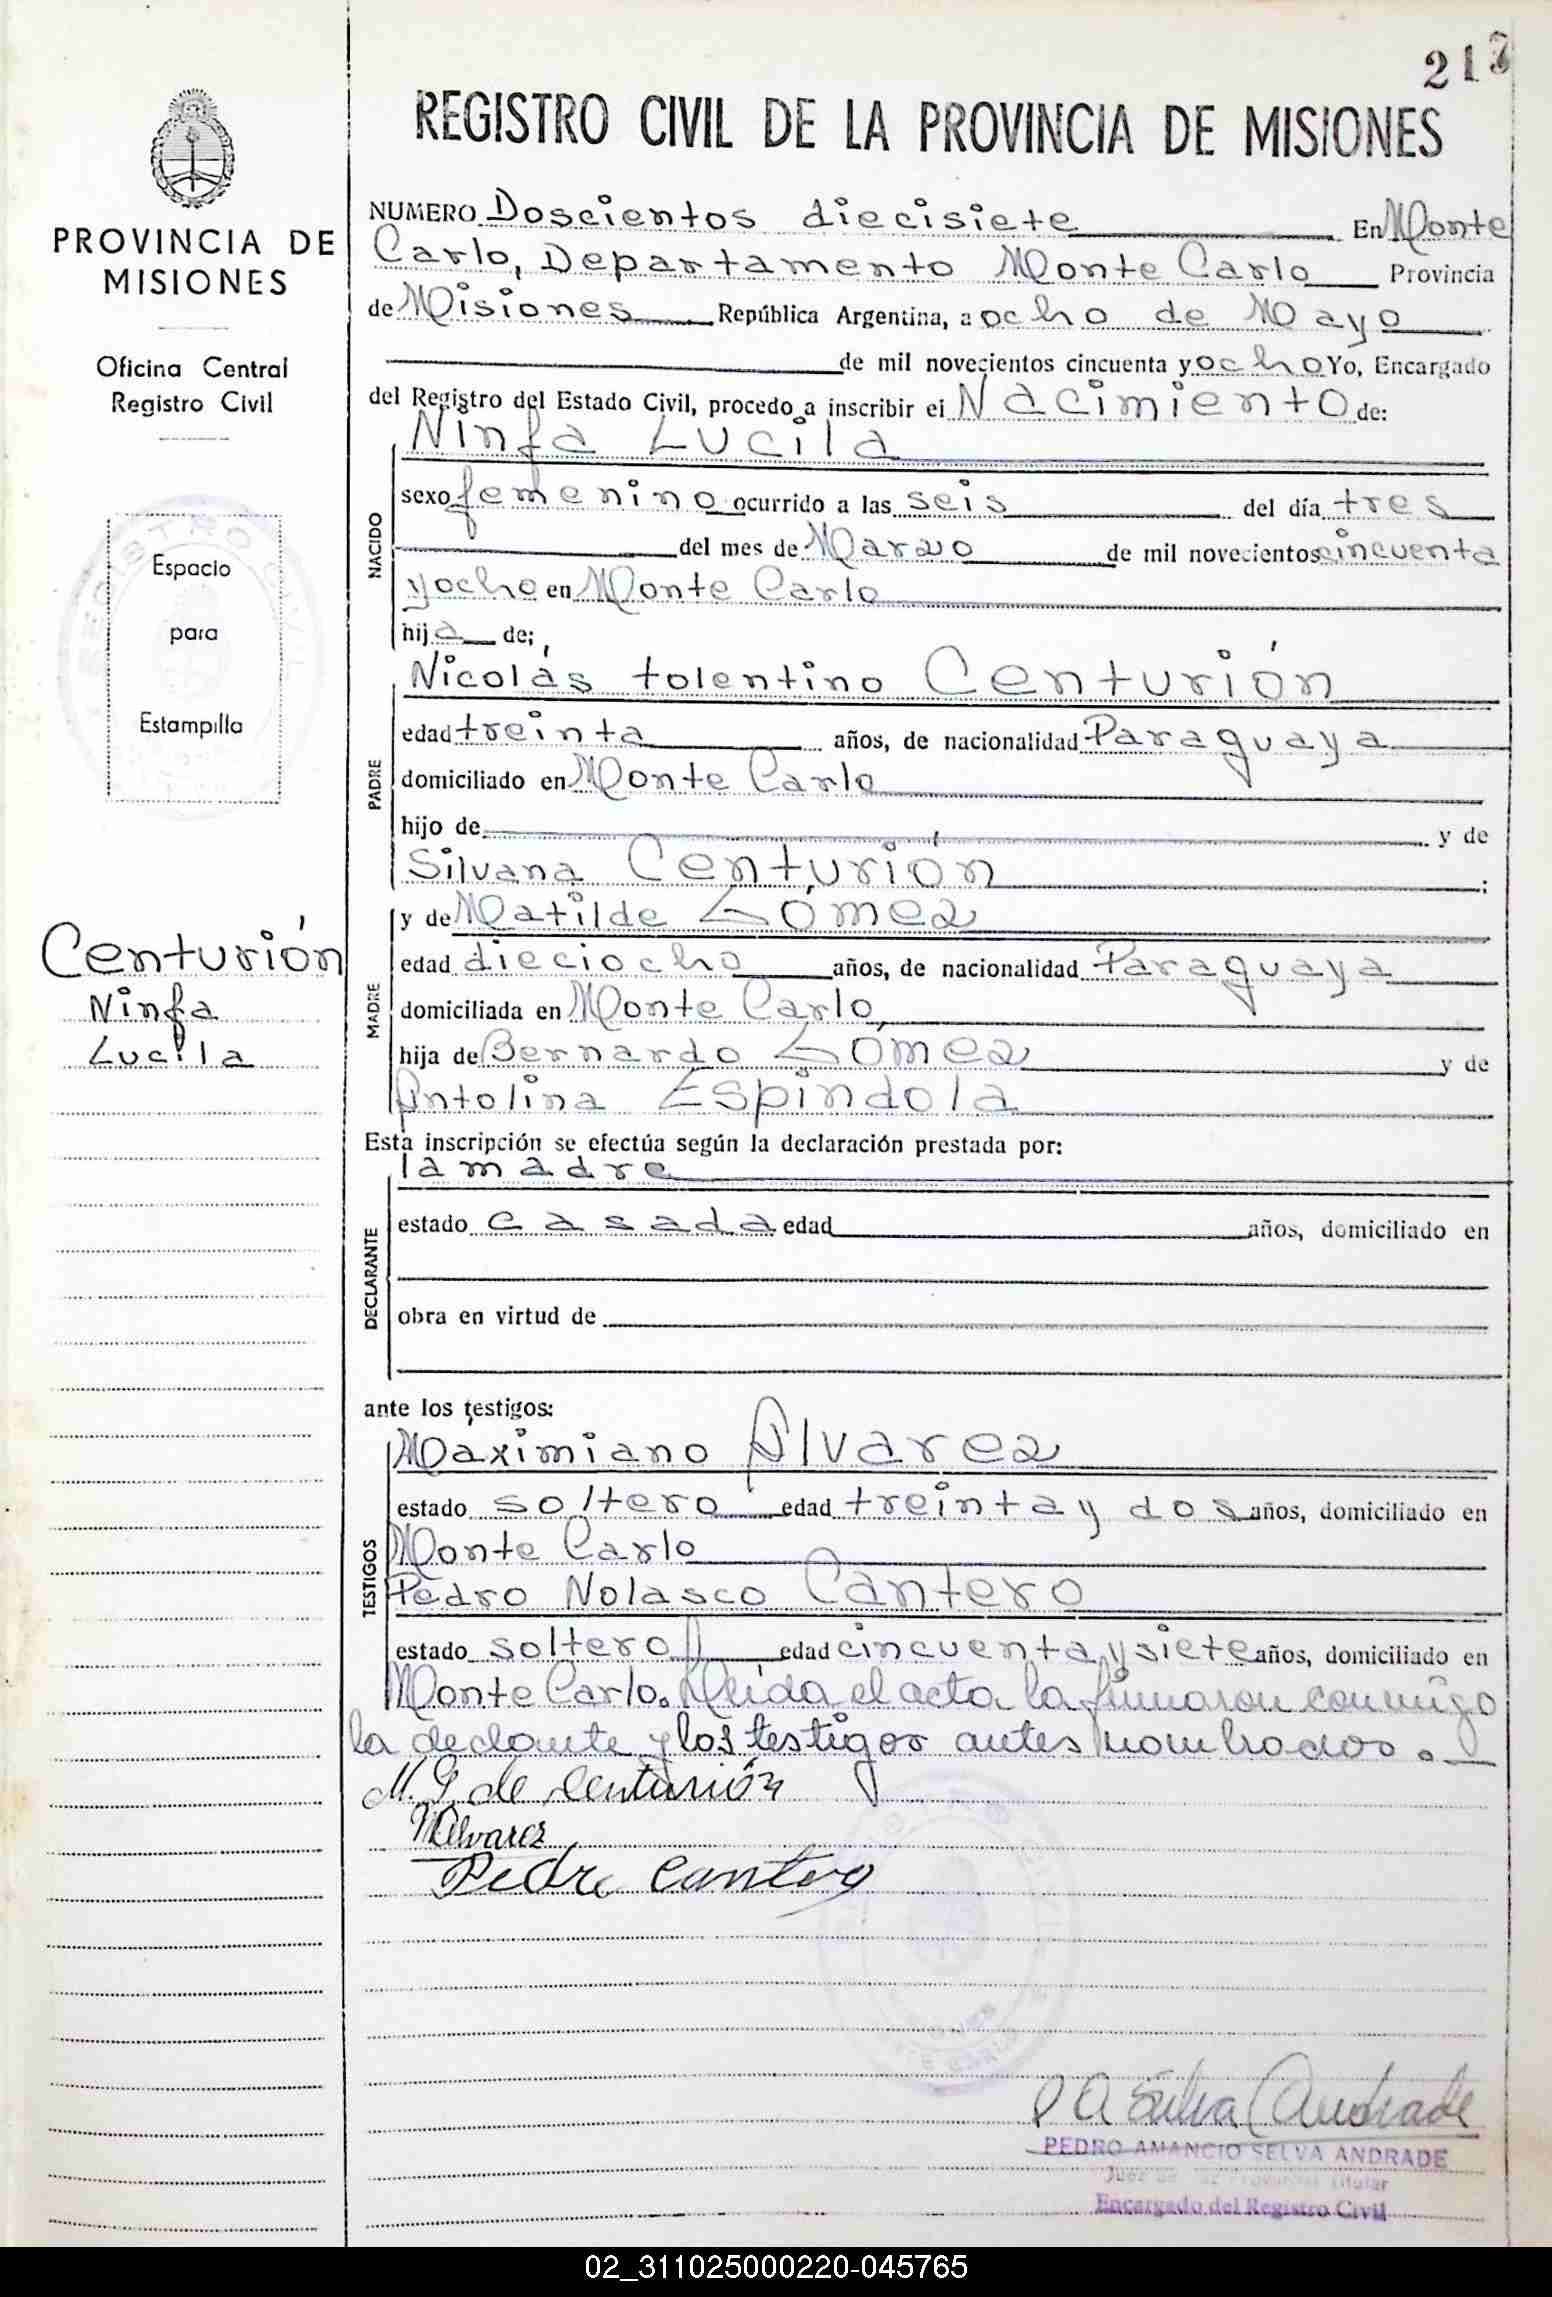 217
REGISTRO CIVIL DE LA PROVINCIA DE MISIONES
PROVINCIA DE
MISIONES
Oficina Central
Registro Civil
Espacio
para
Estampilla
Centurión
Ninfa
Lucila
NUMERO Doscientos diecisiete En Monte
Carlo, Departamento Monte Carlo Provincia
de Misiones República Argentina, a ocho de Mayo
de mil novecientos cincuenta y ocho Yo, Encargado
del Registro del Estado Civil, procedo a inscribir el Nacimiento de:
NACIDO
Ninfa Lucila
sexo femenino ocurrido a las seis del día tres
del mes de Marzo de mil novecientos cincuenta
y ocho en Monte Carlo
hija de;
PADRE
Nicolás tolentino Centurión
edad treinta años, de nacionalidad Paraguaya
domiciliado en Monte Carlo
hijo de y de
Silvana Centurión;
MADRE
y de Matilde Gómez
edad dieciocho años, de nacionalidad Paraguaya
domiciliada en Monte Carlo,
hija de Bernardo Gómez y de
Antolina Espíndola
Esta inscripción se efectúa según la declaración prestada por:
DECLARANTE
la madre
estado casada edad años, domiciliado en
obra en virtud de
ante los testigos:
TESTIGOS
Maximiano Alvarez
estado soltero edad treinta y dos años, domiciliado en
Monte Carlo
Pedro Nolasco Cantero
estado soltero edad cincuenta y siete años, domiciliado en
Monte Carlo. Leida el acta la firmaron conmigo
la declante y los testigos antes nombrados.
M. G. de Centurión
MAlvarez
Pedro Cantero
P A Selva Andrade
PEDRO AMANCIO SELVA ANDRADE
Juez de Paz Provincial Titular
Encargado del Registro Civil
02_311025000220-045765